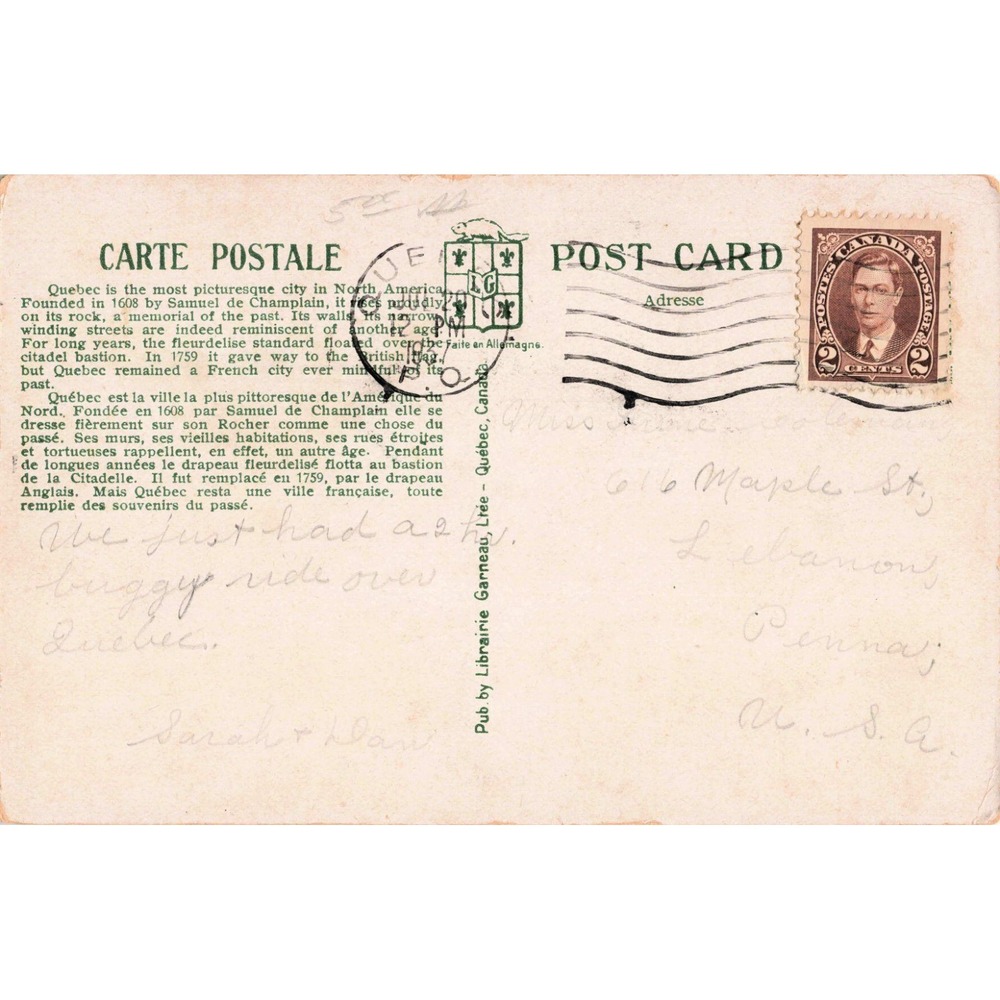 CARTE POSTALE
POST CARD
Adresse
Quebec is the most picturesque city in North America
Founded in 1608 by Samuel de Champlain, it rises proudly
on its rock, a memorial of the past. Its walls, its narrow
winding streets are indeed reminiscent of another age.
For long years, the fleurdelise standard floated over the
citadel bastion. In 1759 it gave way to the British flag,
but Quebec remained a French city ever mindful of its
past.
Québec est la ville la plus pittoresque de l'Amérique du
Nord. Fondée en 1608 par Samuel de Champlain elle se
dresse fièrement sur son Rocher comme une chose du
passé. Ses murs, ses vieilles habitations, ses rues étroites
et tortueuses rappellent, en effet, un autre âge. Pendant
de longues années le drapeau fleurdelisé flotta au bastion
de la Citadelle. Il fut remplacé en 1759, par le drapeau
Anglais. Mais Québec resta une ville française, toute
remplie des souvenirs du passé.
We just had a 2 hr.
buggy ride over
Quebec.
Sarah + Dan
LG
Faite en Allemagne.
Pub. by Librairie Garneau, Ltée - Québec, Canada
12 PM
P.Q
CANADA
POSTES POSTAGE
2 CENTS 2
Miss
616 Maple St.,
Lebanon,
Penna;
U. S. A.